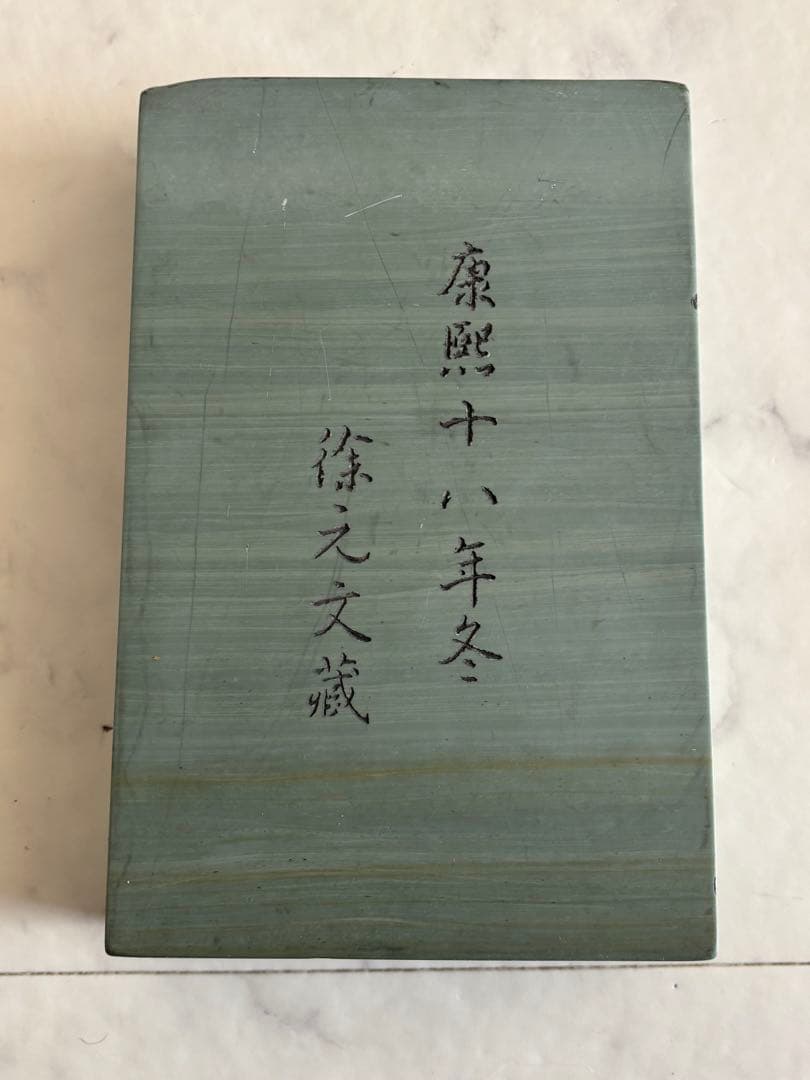 康熙十八年冬
徐元文藏